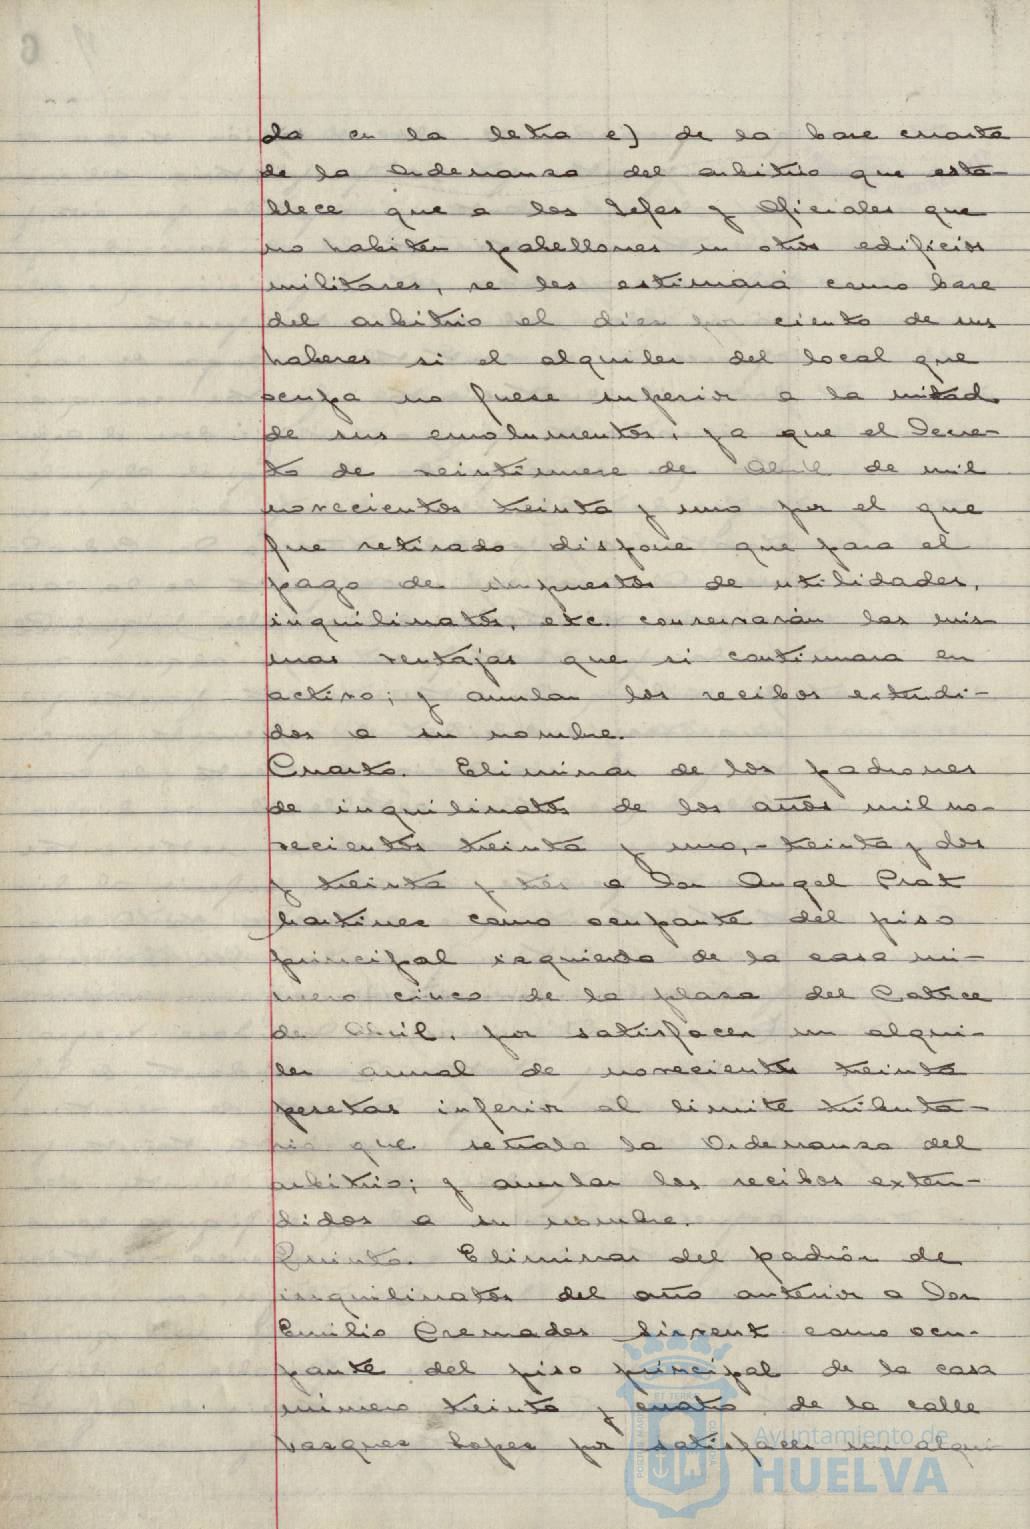 da en la letra e) de la base cuarta
de la Ordenanza del arbitrio que esta-
blece que a los Jefes y Oficiales que
no habiten pabellones en otros edificios
militares, se les estimará como base
del arbitrio el diez por ciento de sus
haberes si el alquiler del local que
ocupa no fuese superior a la mitad
de sus emolumentos, ya que el Decre-
to de veintinueve de Abril de mil
novecientos treinta y uno por el que
fue retirado dispone que para el
pago de impuestos de utilidades,
inquilinatos, etc. conservarán las mis
mas ventajas que si continuara en
activo; y anular los recibos extendi-
dos a su nombre.
Cuarto. Eliminar de los padrones
de inquilinatos de los años mil no-
vecientos treinta y uno,- treinta y dos
y treinta y tres a Don Angel Prat
Martinez como ocupante del piso
principal izquierda de la casa nú-
mero cinco de la plaza del Catorce
de Abril, por satisfacer un alqui-
ler anual de novecientas treinta
pesetas inferior al limite tributa-
rio que señala la Ordenanza del
arbitrio; y anular los recibos exten-
didos a su nombre.
Quinto. Eliminar del padrón de
inquilinatos del año anterior a Don
Emilio Cremades como ocu-
pante del piso principal de la casa
número treinta y cuatro de la calle
Vazquez Lopez por satisfacer un alqui
Ayuntamiento de
HUELVA